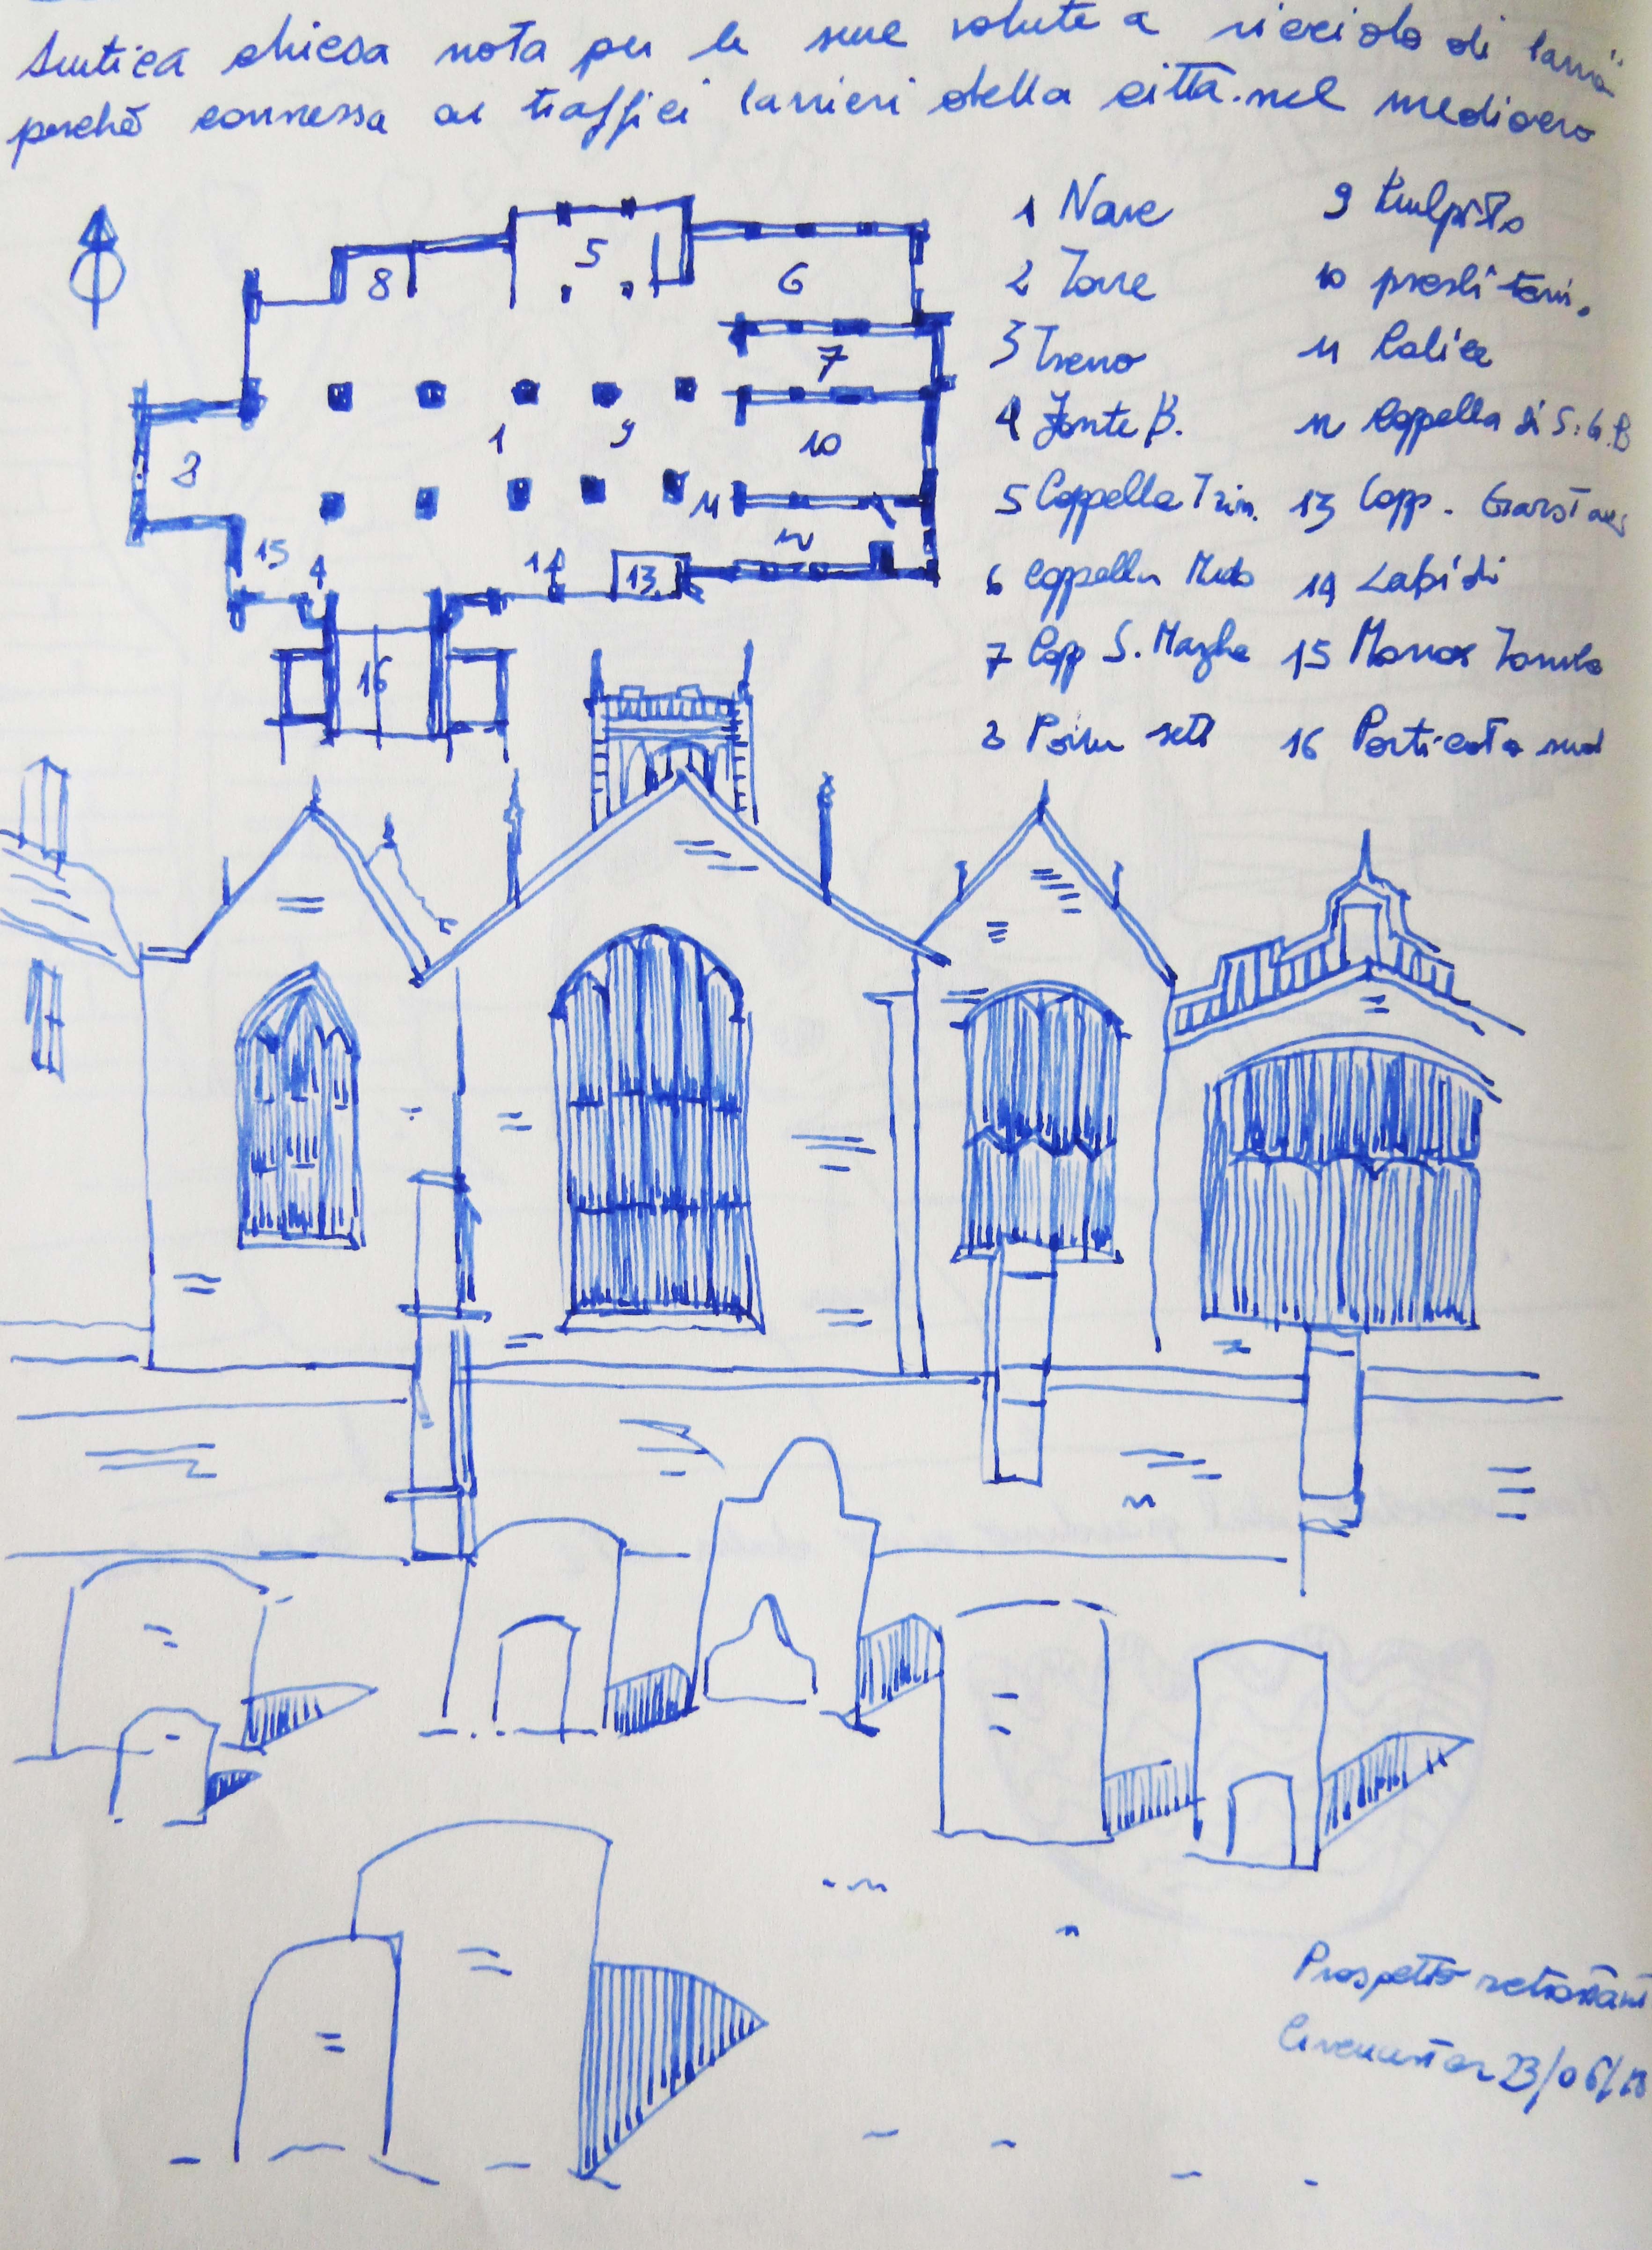 Antica chiesa nota per le sue volute a ricciolo di lana"
perchè connessa ai traffici lanieri della città nel medioevo
1 Nave
2 Torre
3 Treno
4 Fonte B.
5 Cappella Trin.
6 Cappella
7 Capp S. Marghe
8
9 Pulpito
10 presbiterio.
11 Calice
12 Cappella di S. G. B
13 Capp. Garstang
14 Lapidi
15
16 Porticato sud
8
5
6
7
1
9
10
2
11
12
15
4
14
13
16
Prospetto
23/06/18